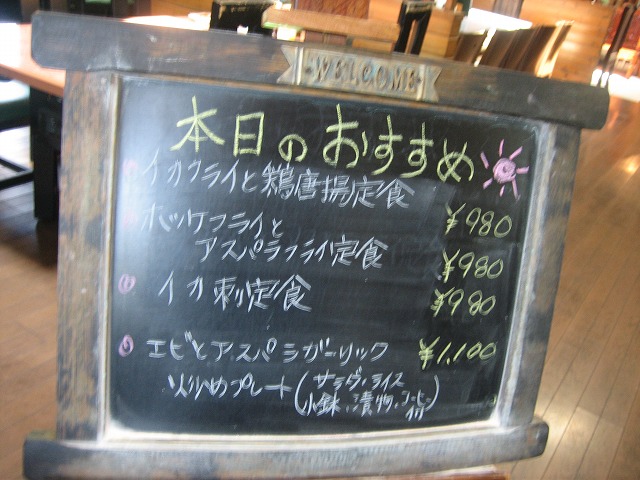 WELCOME
本日のおすすめ
イカフライと鶏唐揚定食 ¥980
ホッケフライと
アスパラフライ定食 ¥980
イカ刺定食 ¥980
エビとアスパラガーリック ¥1,100
炒めプレート(サラダ、ライス
小鉢、漬物、コーヒー付)